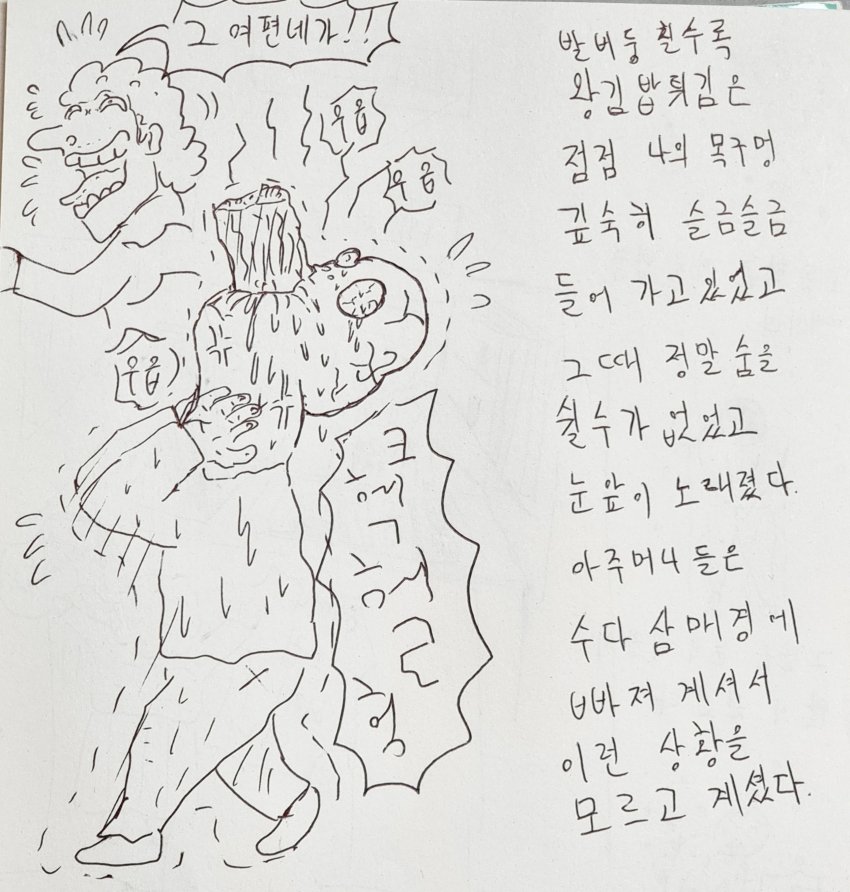 그 여편네가!!
우읍
우읍
우읍
발버둥 칠수록
왕김밥튀김은
점점 나의 목구멍
깊숙히 슬금슬금
들어 가고 있었고
그때 정말 숨을
쉴 수가 없었고
눈앞이 노래졌다.
아주머니 들은
수다 삼매경에
빠져 계셔서
이런 상황을
모르고 계셨다.